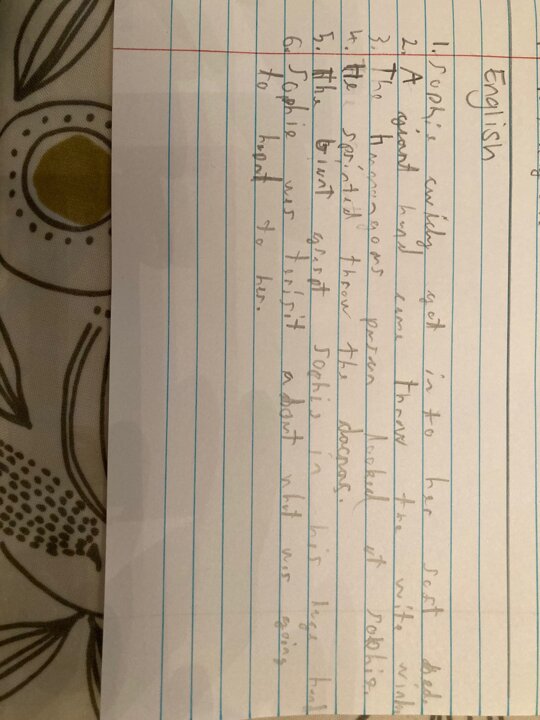 English
1. Sophie cwicly got in to her soft bed.
2. A giant hand came throw the wite
3. The humongous person looked at sophie.
4. He sprinted throw the
5. The Giant graspt sophie in his huge hand
6. Sophie was about what was going
to to her.